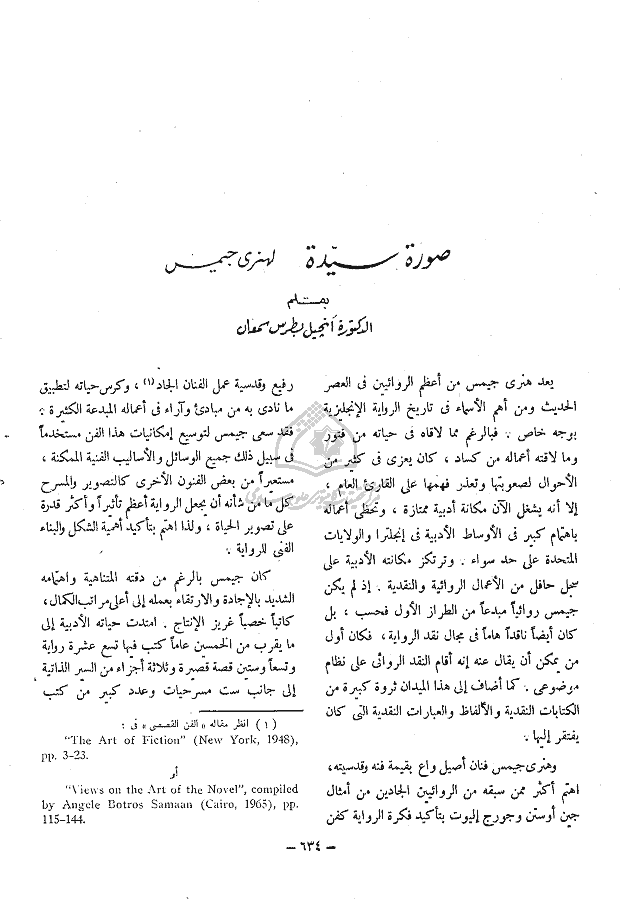 صورة سيّدة لهنرى جيمس
بقلم
الدكتورة أنجيل بطرس سمعان
يعد هنرى جيمس من أعظم الروائيين فى العصر
الحديث ومن أهم الأسماء فى تاريخ الرواية الإنجليزية
بوجه خاص . فبالرغم مما لاقاه فى حياته من فتور
وما لاقته أعماله من كساد ، كان يعزى فى كثير من
الأحوال لصعوبتها وتعذر فهمها على القارئ العام ،
إلا أنه يشغل الآن مكانة أدبية ممتازة ، وتحظى أعماله
باهتمام كبير فى الأوساط الأدبية فى إنجلترا والولايات
المتحدة على حد سواء . وترتكز مكانته الأدبية على
سجل حافل من الأعمال الروائية والنقدية . إذ لم يكن
جيمس روائياً مبدعاً من الطراز الأول فحسب ، بل
كان أيضاً ناقداً هاماً فى مجال نقد الرواية ، فكان أول
من يمكن أن يقال عنه إنه أقام النقد الروائى على نظام
موضوعى . كما أضاف إلى هذا الميدان ثروة كبيرة من
الكتابات النقدية والألفاظ والعبارات النقدية التى كان
يفتقر إليها .
وهنرى جيمس فنان أصيل واع بقيمة فنه وقدسيته ،
اهتم أكثر ممن سبقه من الروائيين الجادين من أمثال
جين أوستن وجورج إليوت بتأكيد فكرة الرواية كفن
رفيع وقدسية عمل الفنان الجاد (١) ، وكرس حياته لتطبيق
ما نادى به من مبادئ وآراء فى أعماله المبدعة الكثيرة .
فقد سعى جيمس لتوسيع إمكانيات هذا الفن مستخدماً
فى سبيل ذلك جميع الوسائل والأساليب الفنية الممكنة ،
مستعيراً من بعض الفنون الأخرى كالتصوير والمسرح
كل ما من شأنه أن يجعل الرواية أعظم تأثيراً وأكثر قدرة
على تصوير الحياة ، ولذا اهتم بتأكيد أهمية الشكل والبناء
الفنى للرواية .
كان جيمس بالرغم من دقته المتناهية واهتمامه
الشديد بالإجادة والارتقاء بعمله إلى أعلى مراتب الكمال ،
كاتباً خصباً غزير الإنتاج . امتدت حياته الأدبية إلى
ما يقرب من الخمسين عاماً كتب فيها تسع عشرة رواية
وتسعاً وستين قصة قصيرة وثلاثة أجزاء من السير الذاتية
إلى جانب ست مسرحيات وعدد كبير من كتب
(١) انظر مقاله « الفن القصصى » فى :
"The Art of Fiction" (New York, 1948),
pp. 3-23.
أو
"Views on the Art of the Novel", compiled
by Angele Botros Samaan (Cairo, 1965), pp.
115-144.
— ٦٣٤ —